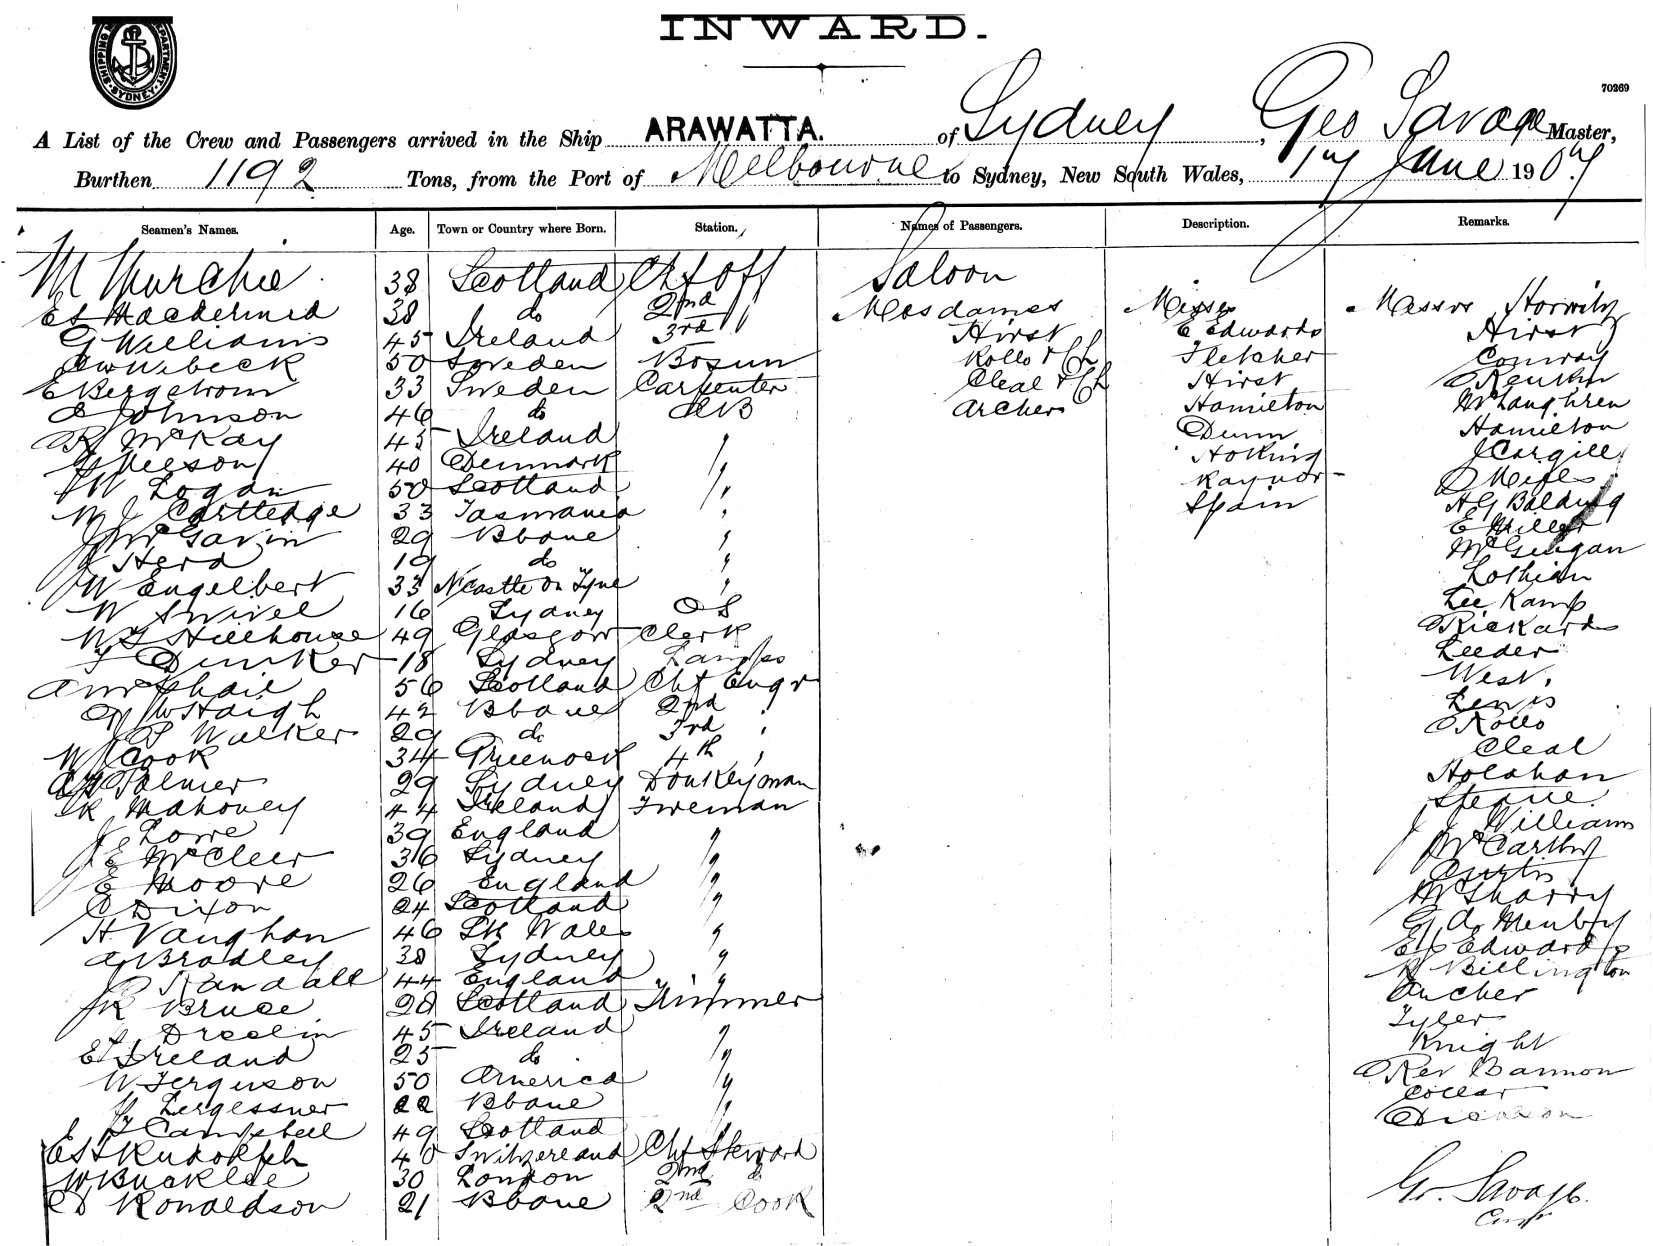 INWARD.
SHIPPING DEPARTMENT. SYDNEY.
70269
A List of the Crew and Passengers arrived in the Ship ARAWATTA. of Sydney, Geo Savage Master,
Burthen 1192 Tons, from the Port of Melbourne to Sydney, New South Wales, 17 June 1907
Seamen's Names. Age. Town or Country where Born. Station. Names of Passengers. Description. Remarks.
M Murchie 38 Scotland Chf Off Saloon
38 do 2nd " Mesdames Misses Messrs Horwitz
G Williams 45 Ireland 3rd " Hirst E Edwards Hirst
50 Sweden Bosun Rollo & Ch Fletcher Conway
E Bergstrom 33 Sweden Carpenter Cleal & Ch Hirst
Johnson 46 do AB Archer Hamilton McLaughren
McKay 45 Ireland " Dunn Hamilton
Neeson 40 Denmark " Hoking J Cargill
W Logan 50 Scotland " Raynor
W J Cartledge 33 Tasmania " Spain H G Balding
J McGavin 29 Bbane " E Miller
Herd 19 do " McGuigan
W Engelbert 33 N'Castle on Tyne " Lothian
W Swivel 16 Sydney OS Lee Kamp
W G Hillhouse 49 Glasgow Clerk Rickards
F Dunker 18 Sydney Lamps Leeder
A McPhail 56 Scotland Chf Engr West.
Haigh 42 Bbane 2nd " Lewis
Walker 29 do 3rd " Rollo
W Cook 34 Greenock 4th " Cleal
Palmer 29 Sydney Donkeyman Holahan
Mahoney 44 Ireland Fireman
Lowe 39 England " J J Williams
J E McCleer 36 Sydney " McCarthy
E Moore 26 England " Curtis
C Dixon 24 Scotland " McSharry
H. Vaughan 46 Sth Wales "
A Bradley 38 Sydney " Edwards
Randall 44 England " Billington
Bruce 28 Scotland Trimmer Archer
45 Ireland " Tyler
Ireland 25 do " Knight
W. Ferguson 50 America " Rev Bannon
Lergessner 22 Bbane " Coller
Campbell 49 Scotland "
Rudolph 40 Switzerland Chf Steward
W Bucklee 30 London 2nd do Geo. Savage.
Ronaldson 21 Bbane 2nd Cook